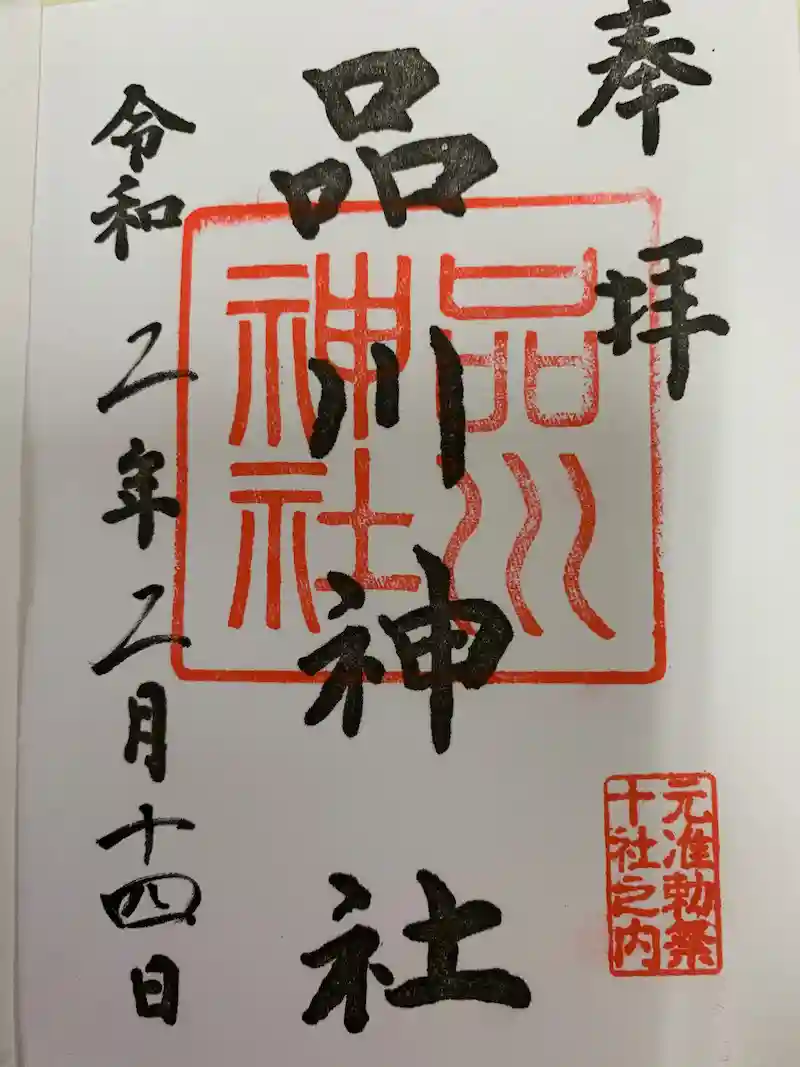 奉拝
品川神社
品川
神社
元准勅祭
十社之内
令和二年二月十四日